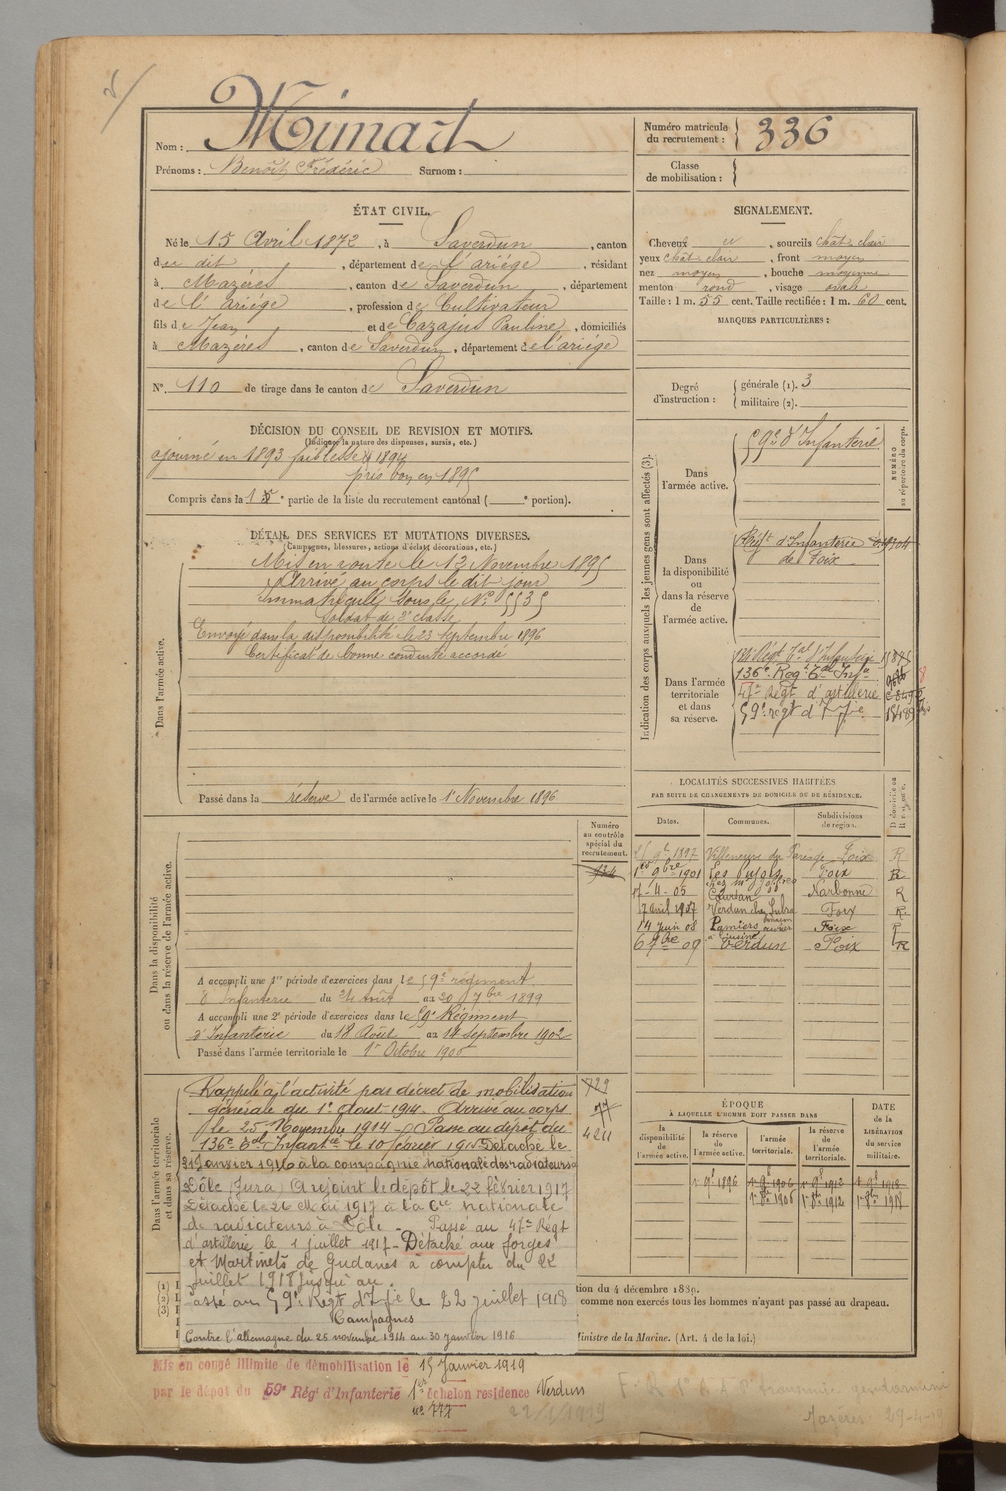 Nom : Mimart
Prénoms : Benoît Frédéric Surnom :
Numéro matricule du recrutement : 336
Classe de mobilisation :
ÉTAT CIVIL.
Né le 15 Avril 1872, à Saverdun, canton
du dit, département de l'ariège, résidant
à Mazères, canton de Saverdun, département
de l'ariège, profession de Cultivateur
fils de Jean et de Cazajus Pauline, domiciliés
à Mazères, canton de Saverdun, département de l'ariège
N° 110 de tirage dans le canton de Saverdun
SIGNALEMENT.
Cheveux et, sourcils chât. clair
yeux chât. clair, front moyen
nez moyen, bouche moyenne
menton rond, visage ovale
Taille : 1 m. 55 cent. Taille rectifiée : 1 m. 60 cent.
MARQUES PARTICULIÈRES :
Degré d'instruction : générale (1). 3
militaire (2).
DÉCISION DU CONSEIL DE REVISION ET MOTIFS.
(Indiquer la nature des dispenses, sursis, etc.)
ajourné en 1893 faiblesse & 1894
pris bon en 1895
Compris dans la 1e partie de la liste du recrutement cantonal ( e portion).
DÉTAIL DES SERVICES ET MUTATIONS DIVERSES.
(Campagnes, blessures, actions d'éclat, décorations, etc.)
Dans l'armée active.
Mis en route le 13 Novembre 1895
Arrivé au corps le dit jour
Immatriculé sous le N° 5535
Soldat de 2e classe
Envoyé dans la disponibilité le 23 septembre 1896
Certificat de bonne conduite accordé
Passé dans la réserve de l'armée active le 1er Novembre 1896
Indication des corps auxquels les jeunes gens sont affectés (3).
NUMÉRO au répertoire du corps.
Dans l'armée active.
59e d'Infanterie
Dans la disponibilité ou dans la réserve de l'armée active.
Régt d'Infanterie
de Foix
Dans l'armée territoriale et dans sa réserve.
136e Régt Tal Infie
47e Régt d'artillerie
59e régt d'Infie
LOCALITÉS SUCCESSIVES HABITÉES
PAR SUITE DE CHANGEMENTS DE DOMICILE OU DE RÉSIDENCE.
Dates. Communes. Subdivisions de région. D domicile ou R résidence.
1897 Villeneuve du Paréage Foix R
1er 9bre 1901 Les Pujols Foix R
17-4-05 Coursan Narbonne R
17 avril 1907 Verdun Foix R
14 Juin 08 Pamiers Foix R
6 09 Verdun Foix R
Dans la disponibilité ou dans la réserve de l'armée active.
Numéro au contrôle spécial du recrutement.
A accompli une 1re période d'exercices dans le 59e régiment
d'Infanterie du 24 Août au 20 7bre 1899
A accompli une 2e période d'exercices dans le 59e Régiment
d'Infanterie du 18 Août au 14 septembre 1902
Passé dans l'armée territoriale le 1er Octobre 1906
Dans l'armée territoriale et dans sa réserve.
Rappelé à l'activité par décret de mobilisation
générale du 1er Aout 1914. Arrivé au corps
le 25 Novembre 1914 - Passe au dépôt du
136e Tal Infantie le 10 février 1915 Détaché le
31 Janvier 1916 à la compagnie nationale des radiateurs à
Dôle (Jura) A rejoint le dépôt le 22 février 1917
Détaché le 26 Mai 1917 à la Cie Nationale
de radiateurs à Dôle - Passé au 47e Régt
d'artillerie le 1 juillet 1917 - Détaché aux forges
et Martinets de Gudanes à compter du 22
juillet 1918 jusqu'au.
assé au 59e Régt d'Infie le 22 juillet 1918
Campagnes
Contre l'allemagne du 25 novembre 1914 au 30 janvier 1916
729
77
4211
ÉPOQUE
À LAQUELLE L'HOMME DOIT PASSER DANS
la disponibilité de l'armée active. la réserve de l'armée active. l'armée territoriale. la réserve de l'armée territoriale.
DATE de la LIBÉRATION du service militaire.
1er 9bre 1896 1er 9bre 1906 1er 9bre 1912 1er 9bre 1918
1er 8bre 1906 1er 8bre 1912 1er 8bre 1918
(1)
(2)
(3)
tion du 4 décembre 1889.
comme non exercés tous les hommes n'ayant pas passé au drapeau.
Ministre de la Marine. (Art. 4 de la loi.)
Mis en congé illimité de démobilisation le 15 Janvier 1919
par le dépôt du 59e Régt d'Infanterie 1er échelon residence Verdun
n° 777
22/1/1919
gendarmerie
Mazères 29-4-19